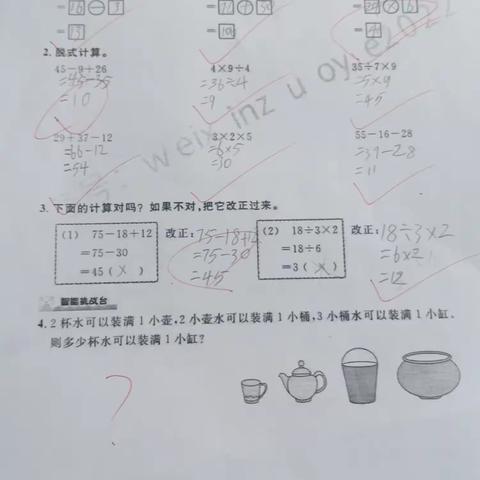 2. 脱式计算。
45-9+26 4×9÷4 35÷7×9
=45-35 =36÷4 =5×9
=10 =9 =45
29+37-12 3×2×5 55-16-28
=66-12 =6×5 =39-28
=54 =30 =11
3. 下面的计算对吗？如果不对，把它改正过来。
(1) 75-18+12 改正：75-18+12 (2) 18÷3×2 改正：18÷3×2
=75-30 =75-30 =18÷6 =6×2
=45(×) =45 =3(×) =12
智能挑战台
4. 2杯水可以装满1小壶，2小壶水可以装满1小桶，3小桶水可以装满1小缸。
则多少杯水可以装满1小缸？